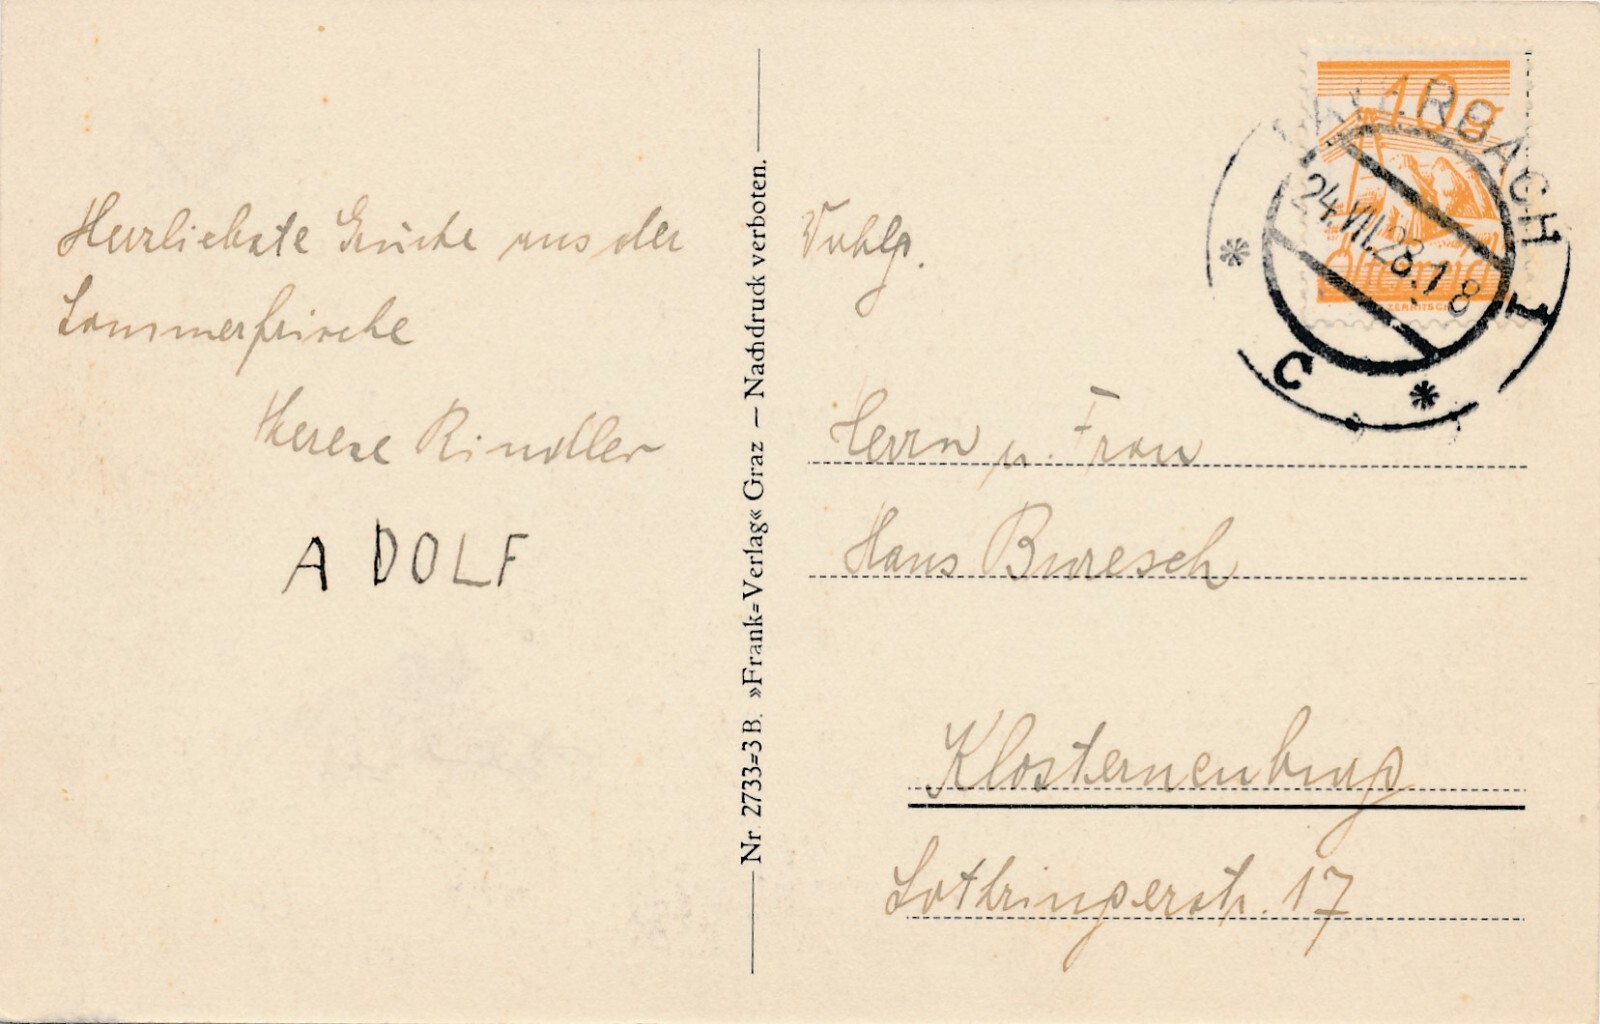 Herzlichste Grüße aus der
Sommerfrische
Therese Rindler
ADOLF
Nr. 2733=3 B. »Frank=Verlag« Graz — Nachdruck verboten.
10g
Österreich
24.VII.28.18
C
I
Wohlg.
Herrn u. Frau
Hans Buresch
Klosterneuburg
Lothringerstr. 17